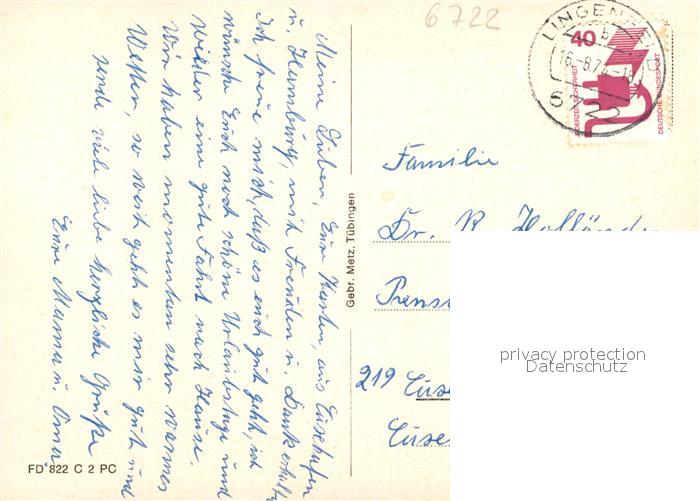 6722
LINGENFELD
b
16.-8.74-18
6722
40
JEDERZEIT SICHERHEIT
DEUTSCHE BUNDESPOST
Meine Lieben, Eure Karten, aus Cuxhafen
u. Hamburg, mit Freuden u. Dank erhalten
Ich freue mich, daß es euch gut geht, ich
wünsche Euch noch schöne Urlaubstage und
wieder eine gute Fahrt nach Hause.
Wir haben momentan sehr warmes
Wetter, so weit geht es mir gut und
sende viele liebe herzliche Grüße
Eure Mama u. Oma
Gebr. Metz, Tübingen
FD 822 C 2 PC
Familie
Dr. R. Hollände
Pens
219 Cux
Cuxe
privacy protection
Datenschutz